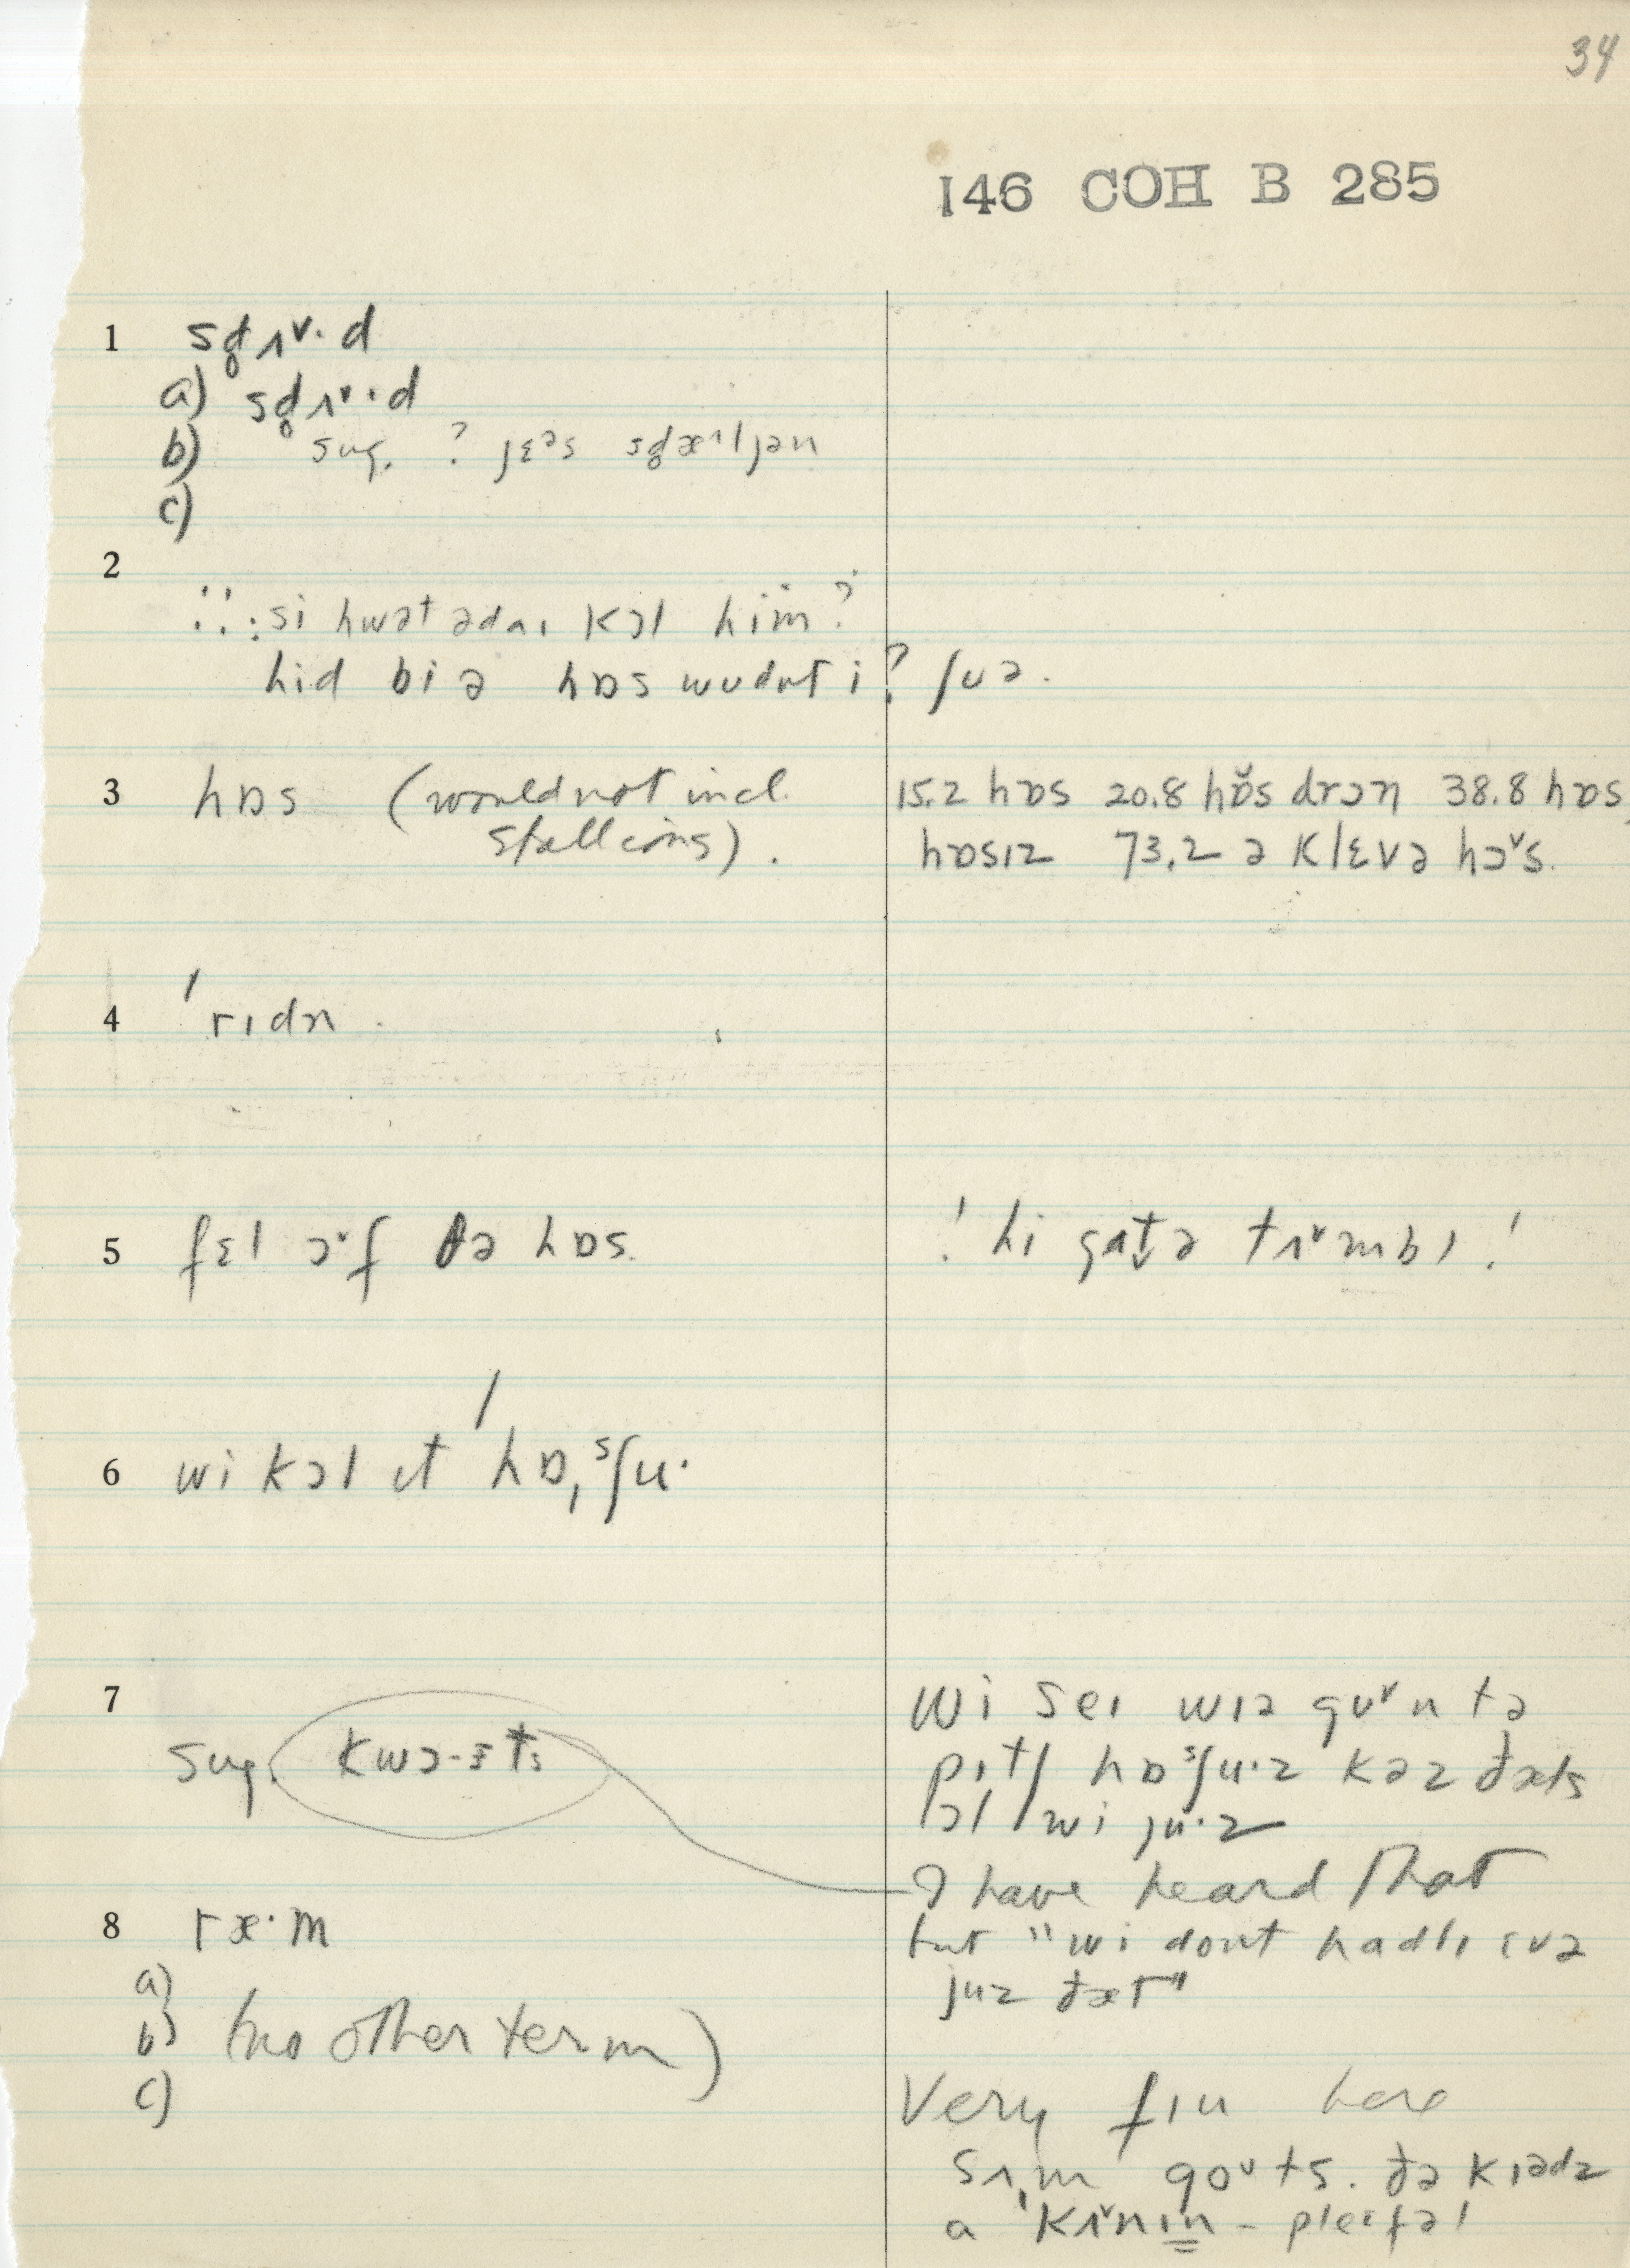 34
146 COH B 285
1 sd̥ʌ˅·d
a) sd̥ʌ˅·d
b) sug. ? jɛᵊs sd̥æ^ljən
c)
2
∴ :si hwət ədaɪ kɔl him?
hid bi ə hɒs wudnt i? ʃuə.
3 hɒs (would not incl.
stallions).
15.2 hɒs 20.8 hɒ̌s drɔn 38.8 hɒs,
hɒsɪz 73.2 ə klɛvə hɔ˅s.
4 'rɪdn
5 fɛl ɔ˅f ðə hɒs.
! hi gat̬ə tʌ˅mbl !
6 wi kɔl ɪt 'hɒˌˢʃu·
7
sug. kwɔ-ɜts
wi seɪ wɪə gu˅n tə
pɪtʃ hɒˢʃu·z kəz ðæts
ɔl wi ju·z
I have heard that
but "wi dont hadlɪ ɛvə
juz ðæt"
8 ræ·m
a)
b) (no other term)
c)
Very fɪu here
sʌm goᵘts. ðə kɪədz
a 'kʌ˅nɪn - pleɪfəl